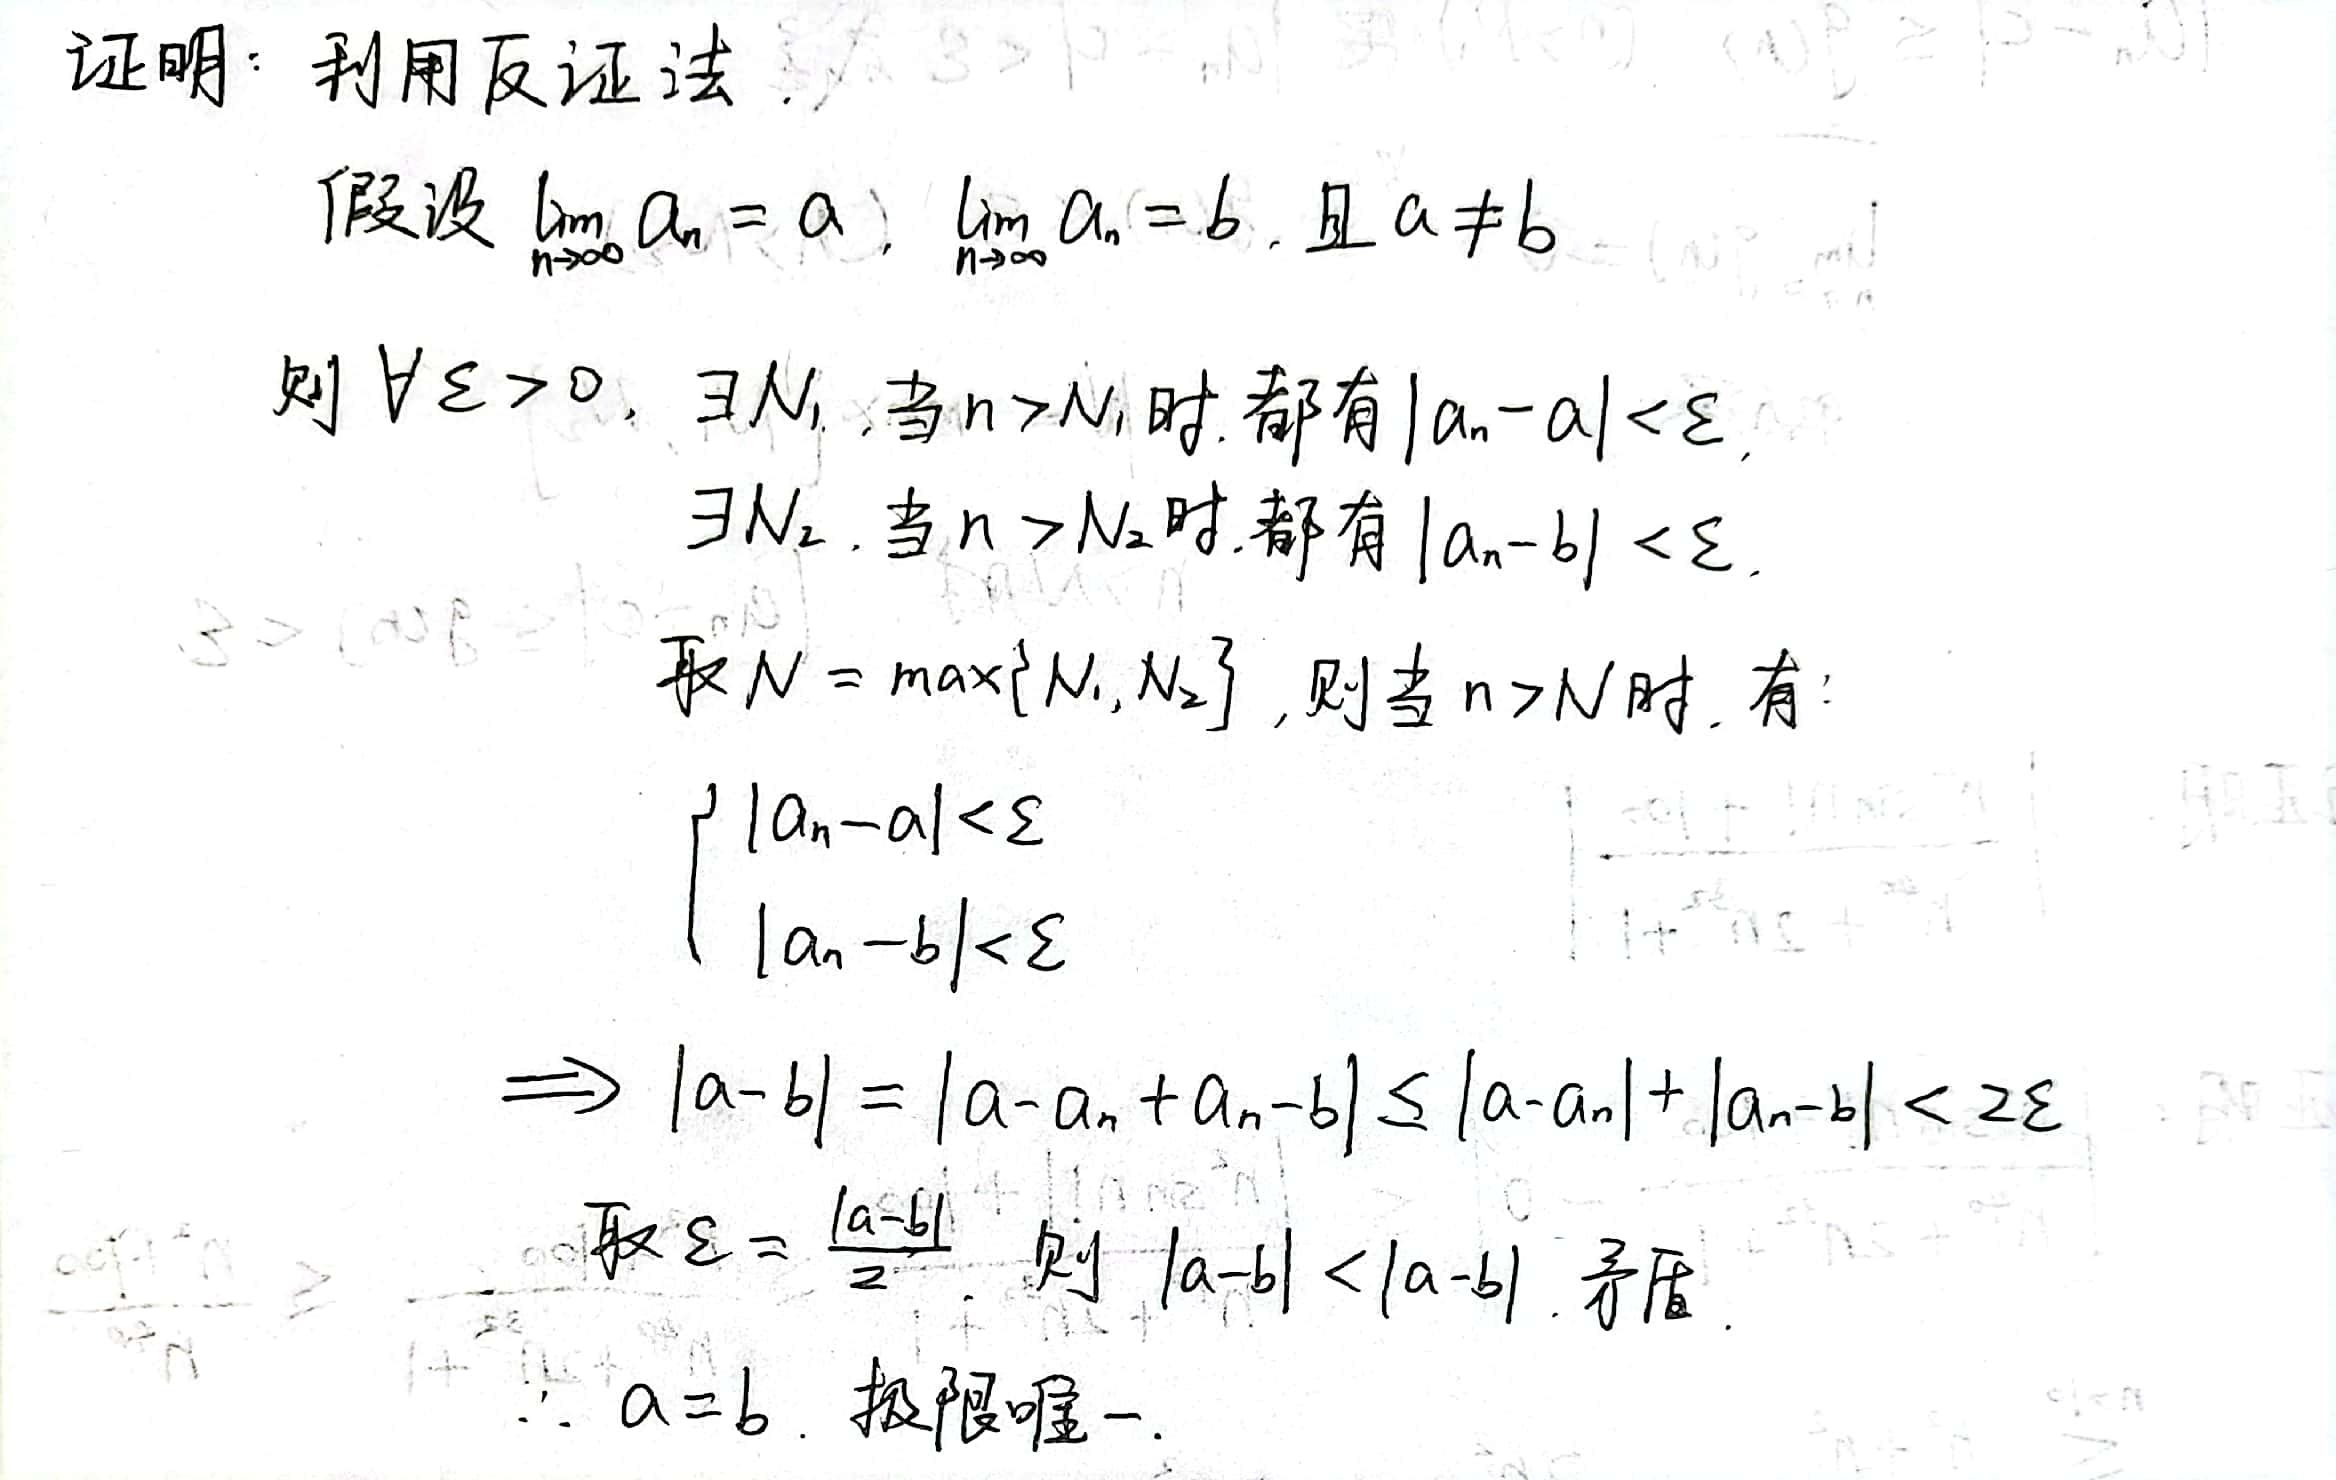 证明: 利用反证法.
假设 lim n→∞ aₙ = a, lim n→∞ aₙ = b, 且 a ≠ b
则 ∀ε>0, ∃N₁, 当n>N₁时,都有|aₙ-a|<ε,
∃N₂, 当n>N₂时,都有|aₙ-b|<ε.
取N = max{N₁,N₂},则当n>N时,有:
{ |aₙ-a|<ε
|aₙ-b|<ε
⟹ |a-b| = |a-aₙ+aₙ-b| ≤ |a-aₙ|+|aₙ-b| < 2ε
取ε = |a-b|/2, 则 |a-b|<|a-b|, 矛盾.
∴ a=b. 极限唯一.